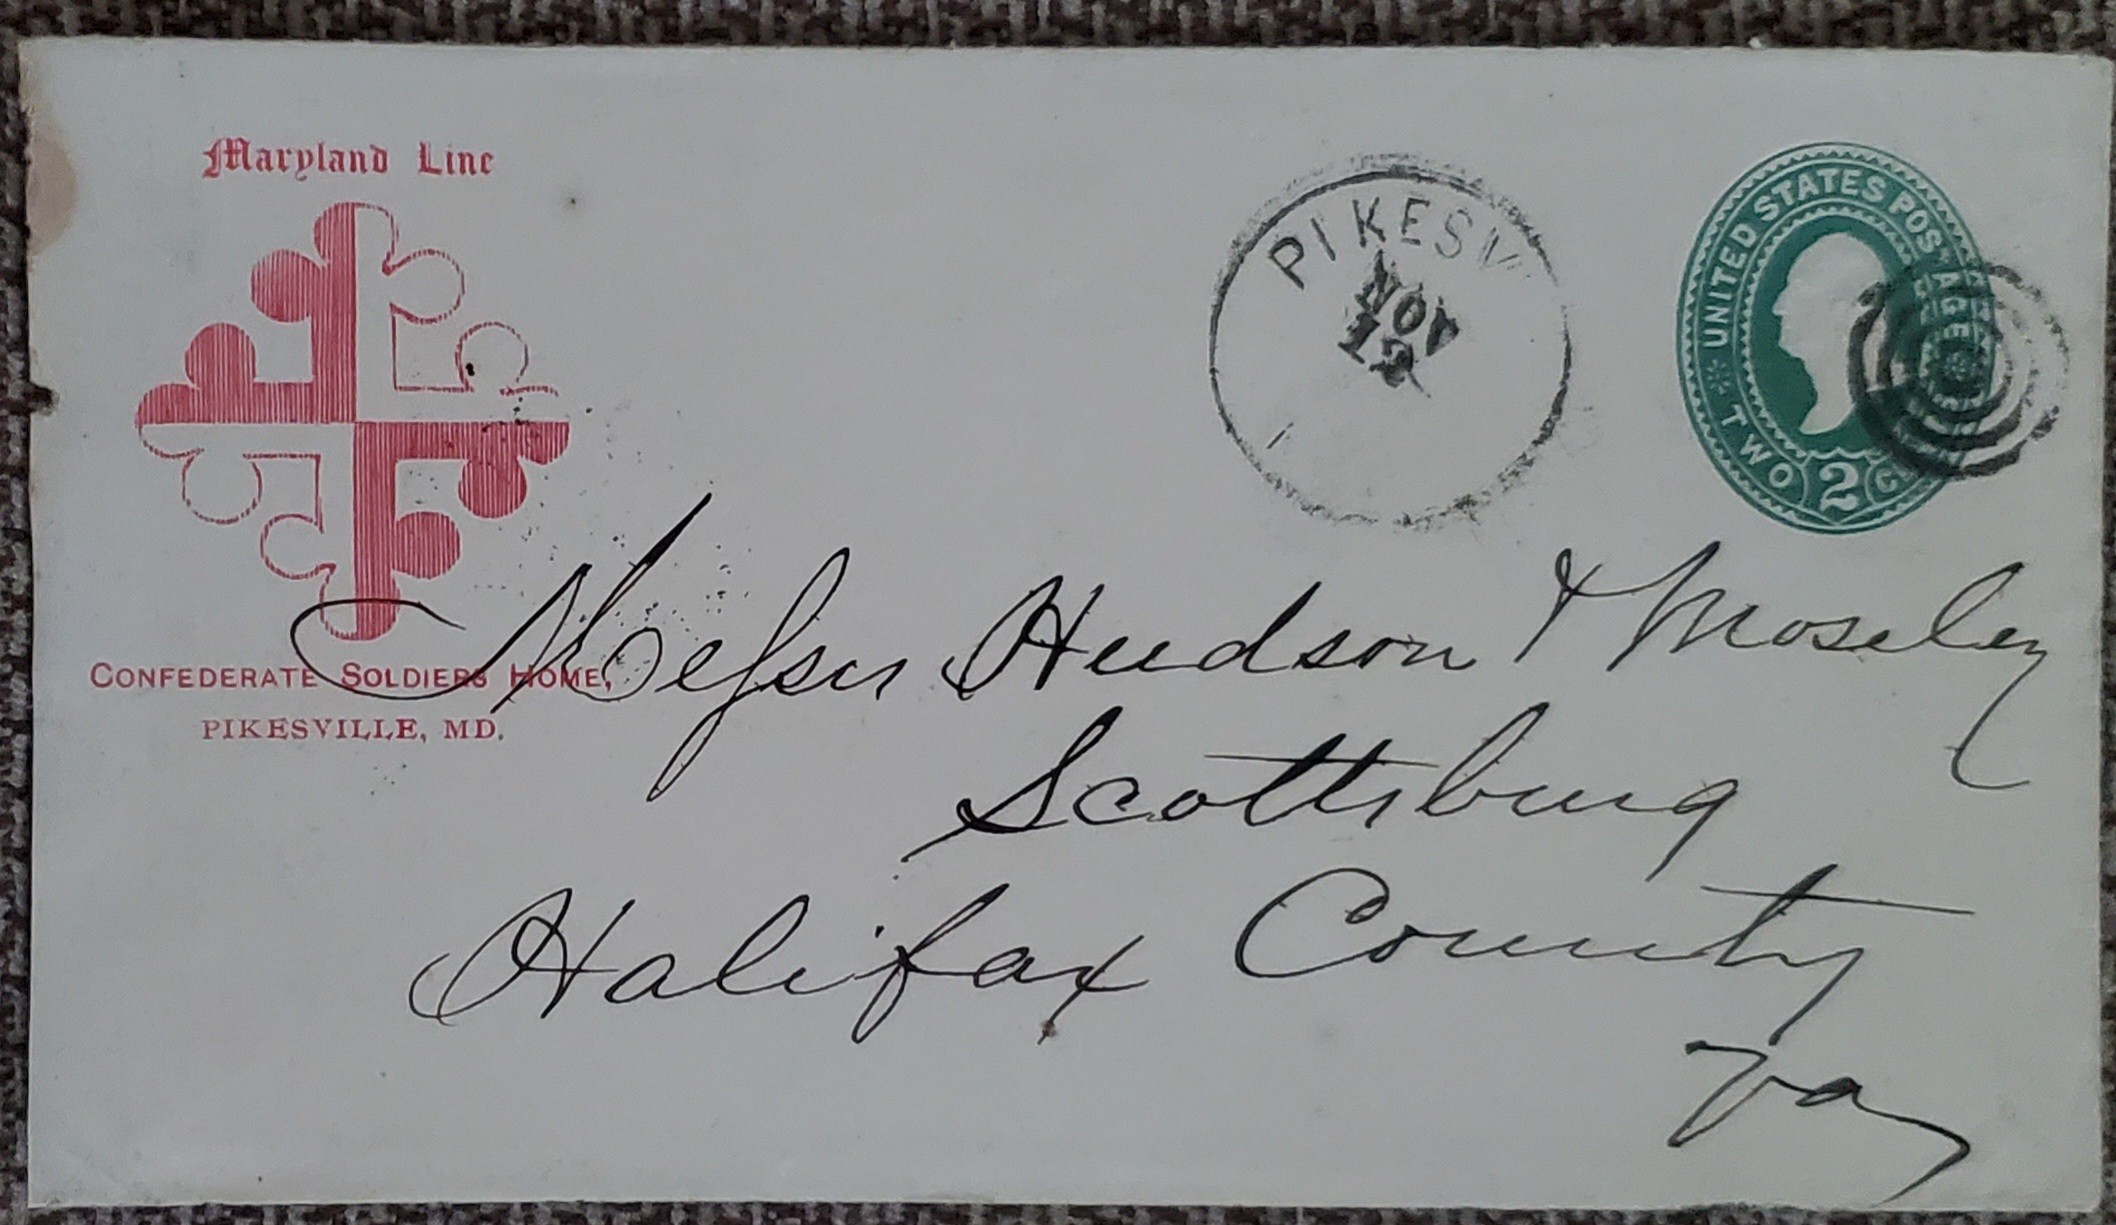 Maryland Line
CONFEDERATE SOLDIERS HOME,
PIKESVILLE, MD.
PIKESV
NOV
12
UNITED STATES POSTAGE
TWO 2 C
Messrs Hudson & Moseley
Scottsburg
Halifax County
Va